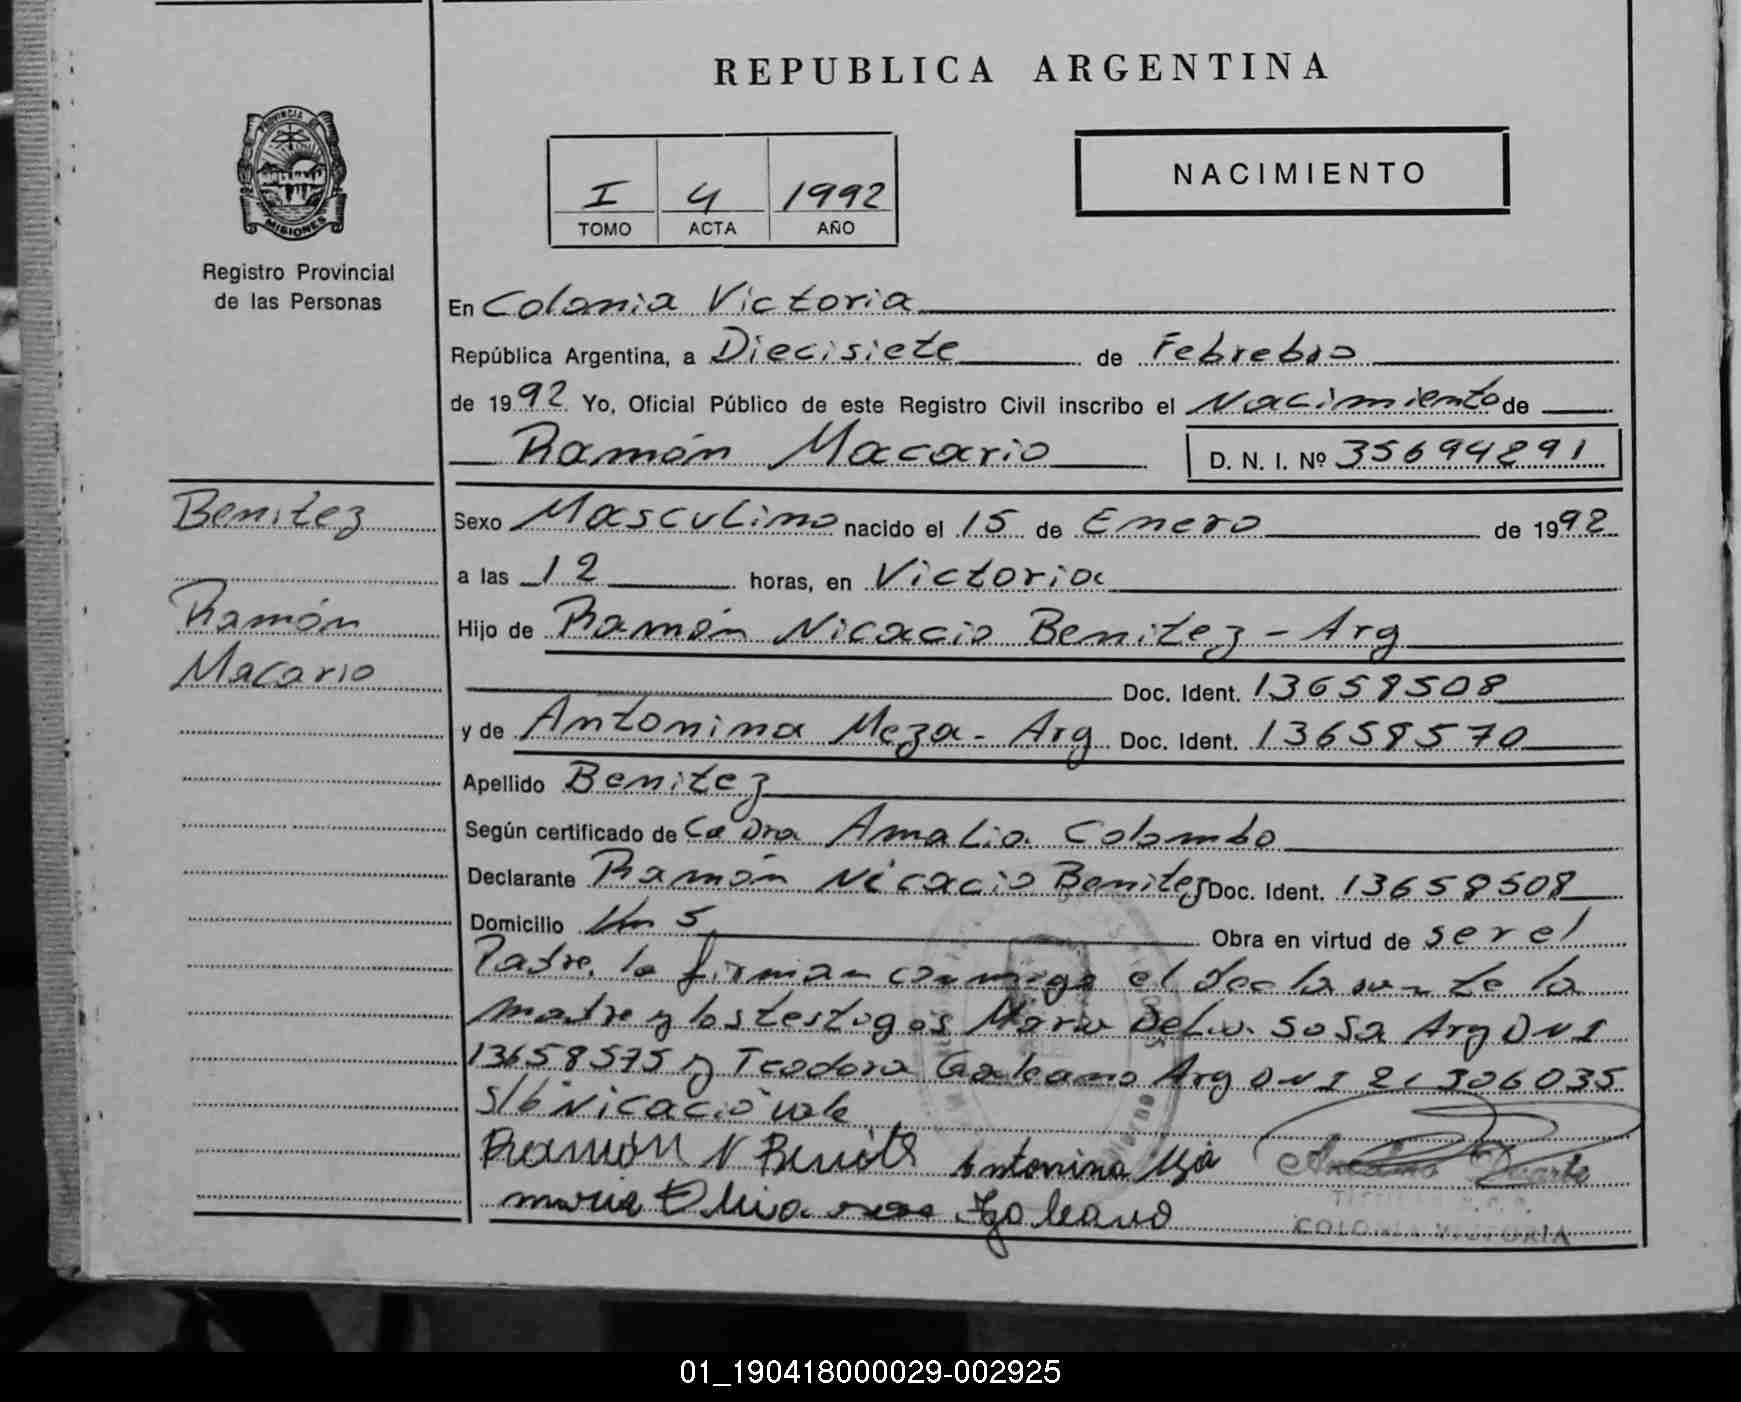 REPUBLICA ARGENTINA
PROVINCIA DE
MISIONES
Registro Provincial
de las Personas
I 4 1992
TOMO ACTA AÑO
NACIMIENTO
En Colonia Victoria
República Argentina, a Diecisiete de Febrebro
de 1992 Yo, Oficial Público de este Registro Civil inscribo el Nacimiento de
Ramón Macario D. N. I. Nº 35694891
Benitez
Ramón
Macario
Sexo Masculino nacido el 15 de Enero de 1992
a las 12 horas, en Victoria
Hijo de Ramón Nicacio Benitez - Arg
Doc. Ident. 13658508
y de Antonina Meza - Arg Doc. Ident. 13658570
Apellido Benitez
Según certificado de La Dra Amalia Colombo
Declarante Ramón Nicacio Benitez Doc. Ident. 13658508
Domicilio Km 5 Obra en virtud de ser el
Padre, la firman conmigo el declarante la
madre y los testigos Maria Sosa Arg DNI
13658575 y Teodora Galeano Arg DNI 21306035
S/b Nicacio vale
Ramón N Benite Antonina
maria Galeano
COLONIA VICTORIA
01_190418000029-002925